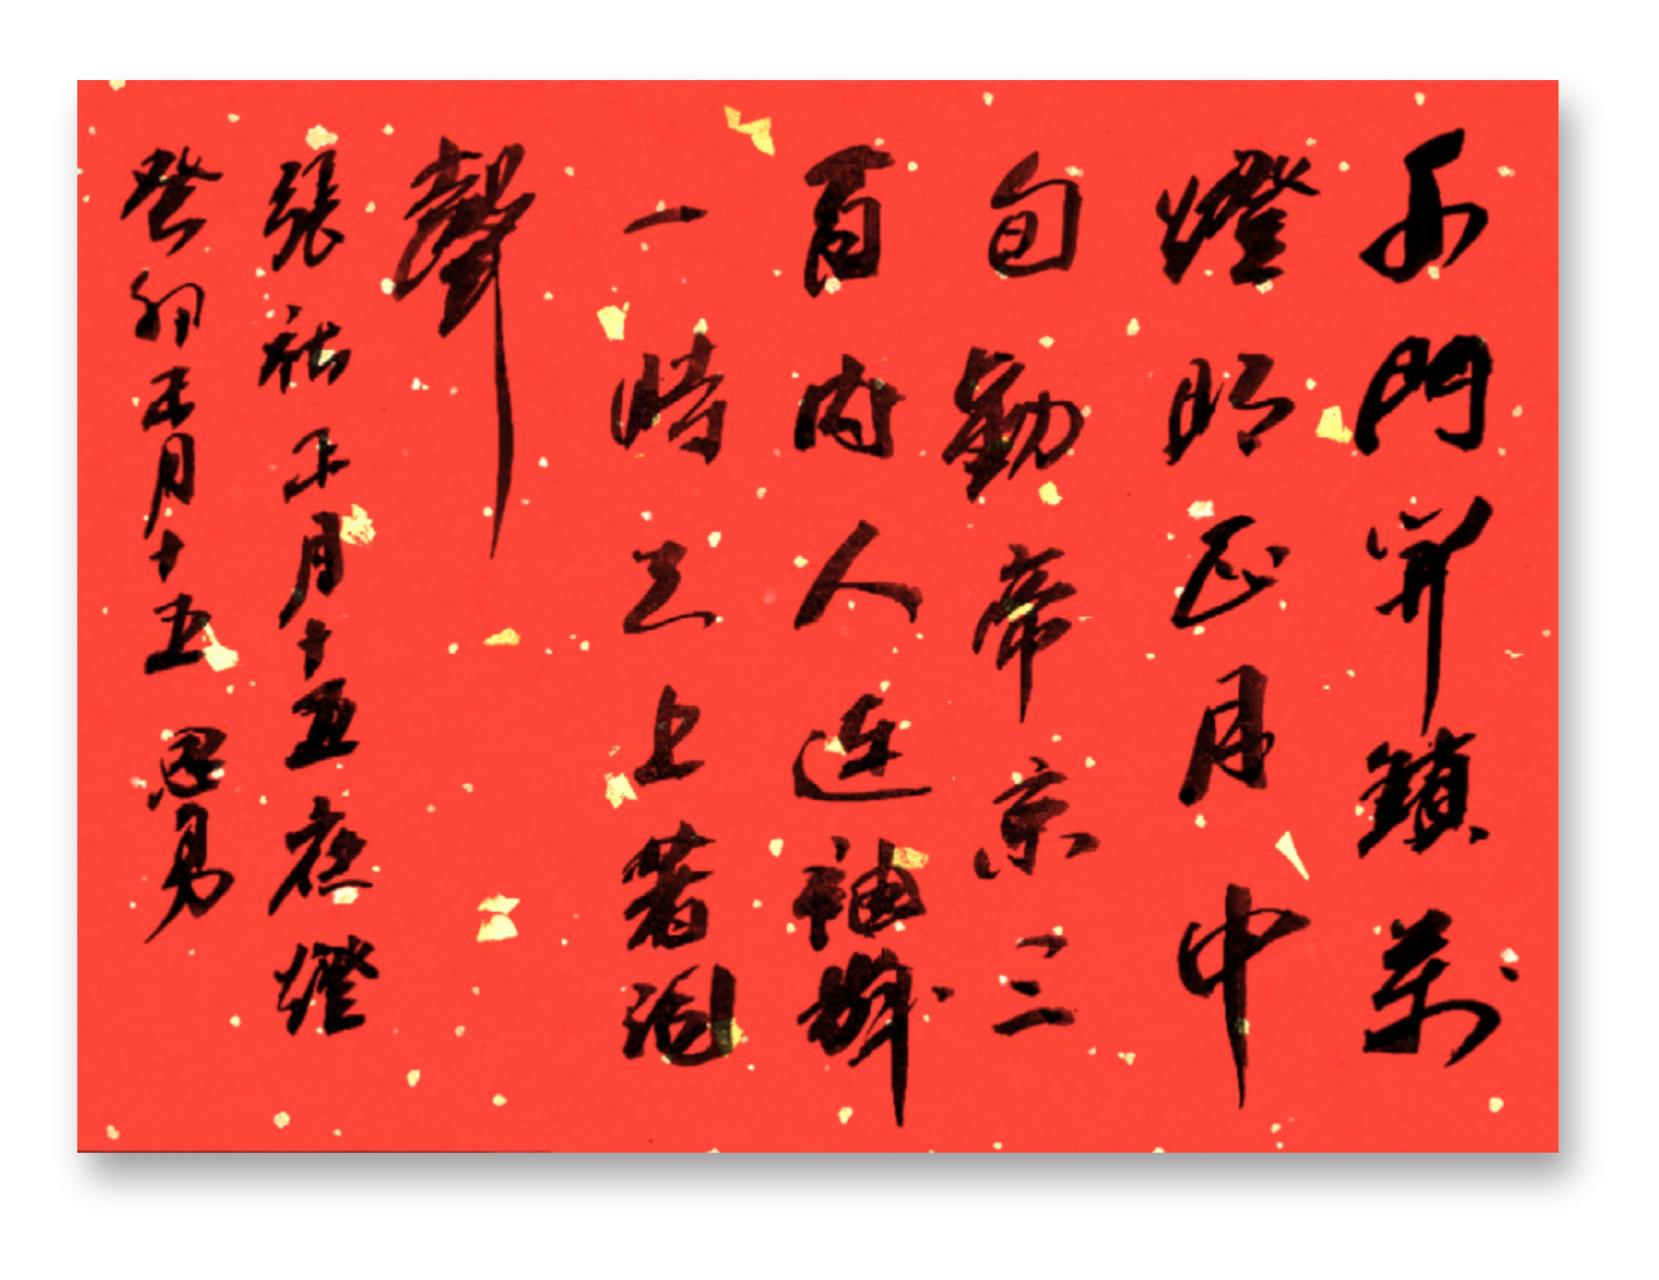 千門開鎖萬
燈明正月中
旬動帝京三
百内人連袖舞
一時天上著詞
聲
張祜正月十五夜燈
癸卯正月十五 易